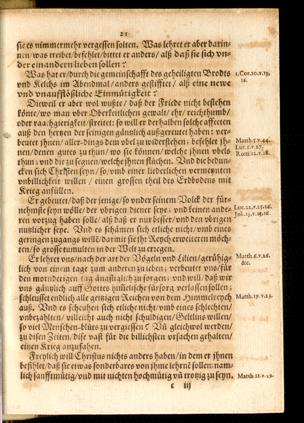 21
sie es nimmermehr vergessen solten. Was lehret er aber darin-
nen was treibet/befihlet/bittet er anders/ als daß sie sich un-
der einander lieben sollen?
Was hat er/durch die gemeinschafft des geheiligten Brodts
und Kelchs im Abendmal/ anders gestifftet/ als eine newe
und unauffläßliche Einmütigkeit?
1. Cor. 10. v. 15,
16.
Dieweil er aber wol wußte/ daß der Friede nicht bestehen
könte/wo man uber Oberkeitlichen gewalt/ ehr/ reichthumb/
oder raachgierigkeit/streitet: so will er derhalben solche affecten
auß den hertzen der seinigen gäntzlich außgereutet haben: ver-
beutet ihnen/ aller-dings dem ubel zu widerstehen: befihlet ih-
nen/denen gutes zu thun/ wo sie können/ welche ihnen ubels
thun/und die zu segnen/welche ihnen fluchen. Und die bedun-
cken sich Christen seyn/ so/umb einer liederlichen vermeynten
unbillichkeit willen/ einen grossen theil des Erdbodens mit
Krieg anfüllen.
Matth. 5. v. 44.
Luc. 6. v. 27.
Rom. 12. v. 18.
Er gebeutet/ daß der jenige/ so under seinem Volck der für-
nehmste seyn wölle/ der ubrigen diener seye/ und keinem ande-
ren vorzug haben solle/ als daß er nur besser/und den ubrigen
nutzlicher seye. Und es schämen sich etliche nicht/ umb eines
geringen zugangs will/darmit sie ihr Reych erweiteren möch-
ten/ so grosse tumulten in der Welt zu erregen.
Luc. 22. v. 25. 26.
Joh. 13. v. 14. 16.
Er lehret uns/nach der art der Vögeln und Lilien/ gerühig-
lich von einem tage zum anderen zuleben; verbeutet uns/ für
den morndrigen tag ängstiglich zu sorgen: und will/ daß wir
uns gäntzlich auff Gottes himlische fürsorg verlassen sollen;
schleusset endlich alle geitzigen Reichen von dem Himmelreych
auß. Und es scheuhen sich etliche nicht/umb eines schlechten/
unbezahlten/ villeicht auch nicht schuldigen/ Geltlins willen/
so viel Menschen-bluts zu vergiessen? Und gleichwol werden/
zu disen Zeiten/ dise fast für die billichsten ursachen gehalten/
einen Krieg anzufahen.
Matth. 6. v. 26.
&c.
Matth. 19. v. 23.
Freylich will Christus nichts anders haben/ in dem er ihnen
befihlet/daß sie etwas sonderbares von ihme lernen sollen: nam-
lich sanfftmütig/und mit nichten hochmütig und trotzig zu seyn.
Matth. 11. v. 29.
c iij